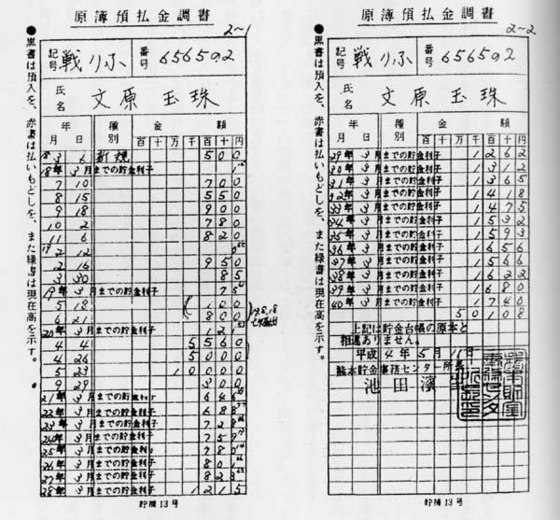 原簿預払金調書
2~1
●黒書は預入を、赤書は払いもどしを、また緑書は現在高を示す。
記号 戦りふ 番号 656502
氏名 文原玉珠
年月日 種別 金額
百十万千百十円
18 3 6 新規 500
18年3月までの貯金利子
7 10 700
8 15 550
9 18 900
10 2 780
11 6 820
2 12
2 16 950
3 30 85
19年3月までの貯金利子
5 18 100
6 21 800
20年3月までの貯金利子
4 4 5560
4 26 5000
5 23 10000
9 29 300
21年3月までの貯金利子
22年3月までの貯金利子
23年3月までの貯金利子
24年3月までの貯金利子
25年3月までの貯金利子
26年3月までの貯金利子
27年3月までの貯金利子
28年3月までの貯金利子 1215
貯補13号
原簿預払金調書
2~2
●黒書は預入を、赤書は払いもどしを、また緑書は現在高を示す。
記号 戦りふ 番号 656502
氏名 文原玉珠
年月日 種別 金額
百十万千百十円
29年3月までの貯金利子 1262
30年3月までの貯金利子 1312
31年3月までの貯金利子 1365
32年3月までの貯金利子 1418
33年3月までの貯金利子 1475
34年3月までの貯金利子 1532
35年3月までの貯金利子 1593
36年3月までの貯金利子 1656
37年3月までの貯金利子 1566
38年3月までの貯金利子 1622
39年3月までの貯金利子 1680
40年3月までの貯金利子 1740
50108
上記は貯金台帳の原本と
相違ありません。
平成4年5月11日
熊本貯金事務センター所長
池田
貯補13号